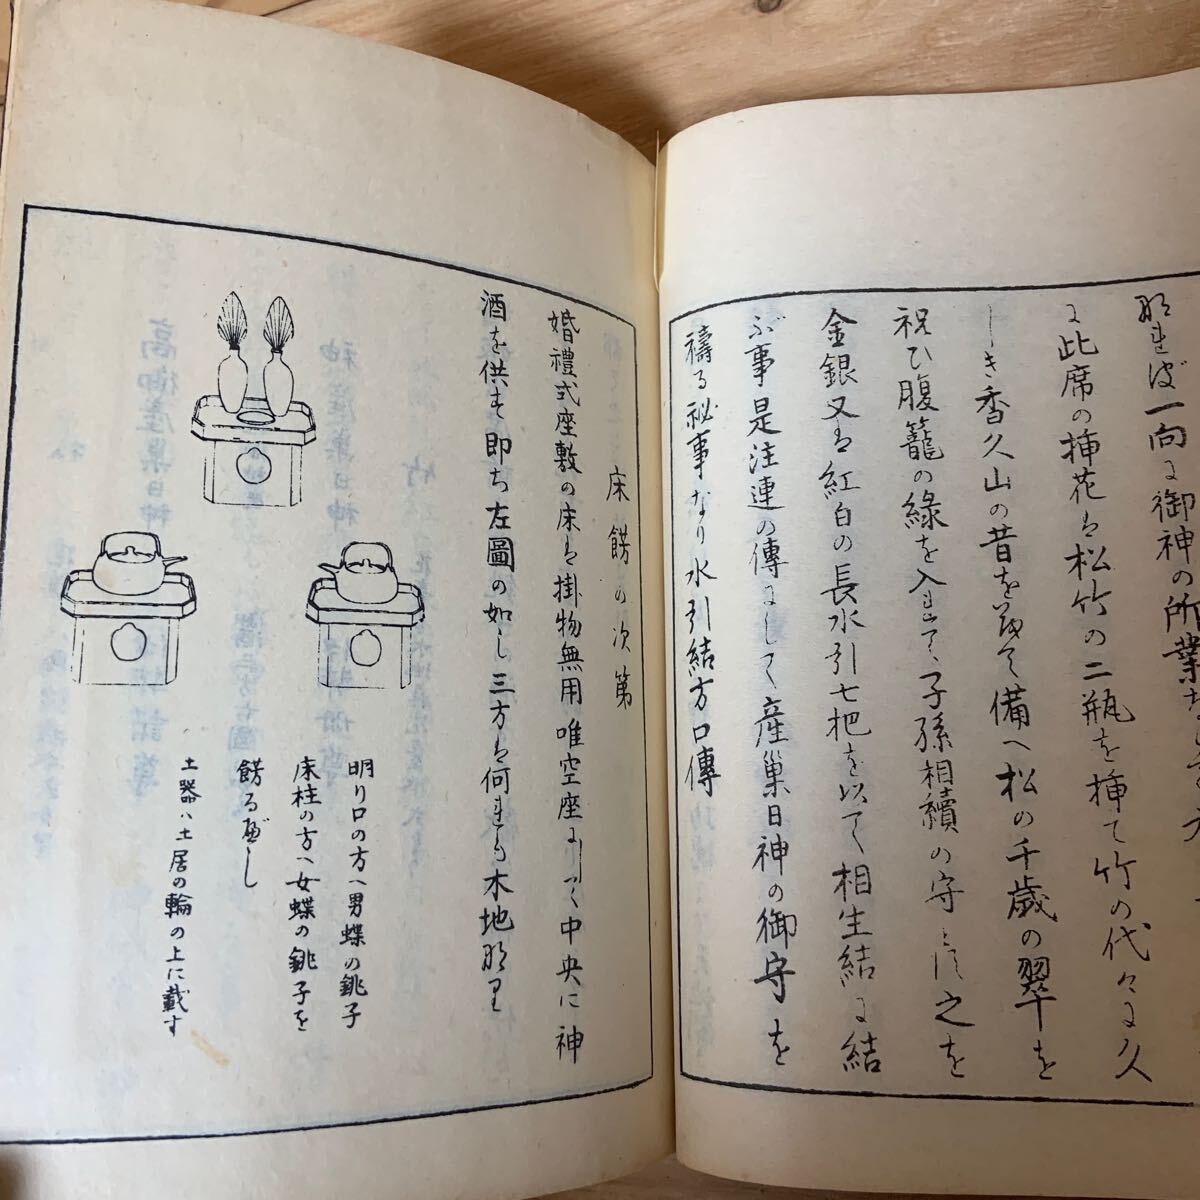 此席の挿花は松竹の二瓶を挿て竹の代々に久
しき香久山の昔を以て備へ松の千歳の翠を
祝ひ腹籠の緑を入れて、子孫相續の守とし之を
金銀又は紅白の長水引七把を以て相生結に結
ぶ事是注連の傳にして産巣日神の御守を
禱る秘事なり水引結方口傳
床餝の次第
婚禮式座敷の床は掛物無用唯空座にして中央に神
酒を供す即ち左圖の如し三方は何れも木地なり
明り口の方へ男蝶の銚子
床柱の方へ女蝶の銚子を
餝るべし
土器ハ土居の輪の上に載す